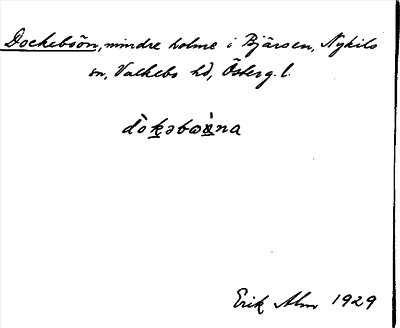 Dockebsön, mindre holme i Bjärsen, Nykils
sn, Valkebo hd, Österg. l.
dòkəbɷx̀na
Erik Alm 1929